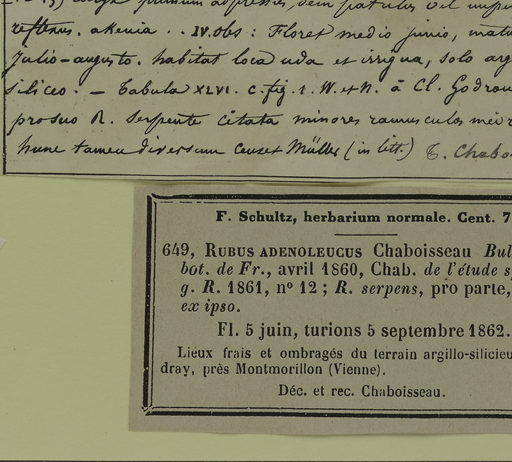 reflexus. akenia . . IV. obs : Floret medio junio, matu
julio-augusto. habitat loca uda et irrigua, solo arg
siliceo. — Tabula XLVI. c. fig. 1. W. et N. à Cl. Godron
pro suo R. serpente citata minores ramusculos
hunc tamen diversum censet Müller (in litt.) T. Chabo
F. Schultz, herbarium normale. Cent. 7
649, RUBUS ADENOLEUCUS Chaboisseau Bul
bot. de Fr., avril 1860, Chab. de l'étude s
g. R. 1861, nº 12 ; R. serpens, pro parte,
ex ipso.
Fl. 5 juin, turions 5 septembre 1862.
Lieux frais et ombragés du terrain argillo-silicieu
dray, près Montmorillon (Vienne).
Déc. et rec. Chaboisseau.